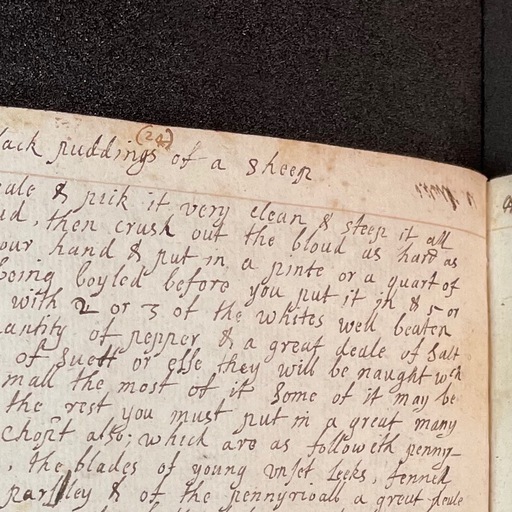 (24)
lack puddings of a sheep
eale & pick it very clean & steep it all
ud, then crush out the bloud as hard as
our hand & put in a pinte or a quart of
being boyled before you put it in & 5 or
with 2 or 3 of the whites well beaten
antity of pepper & a great deale of salt
of suett or else they will be naught wch
mall the most of it some of it may be
the rest you must put in a great many
chopt also; which are as followeth penny-
, the blades of young unset Leeks, fennell
parsley & of the pennyrioall a great deale